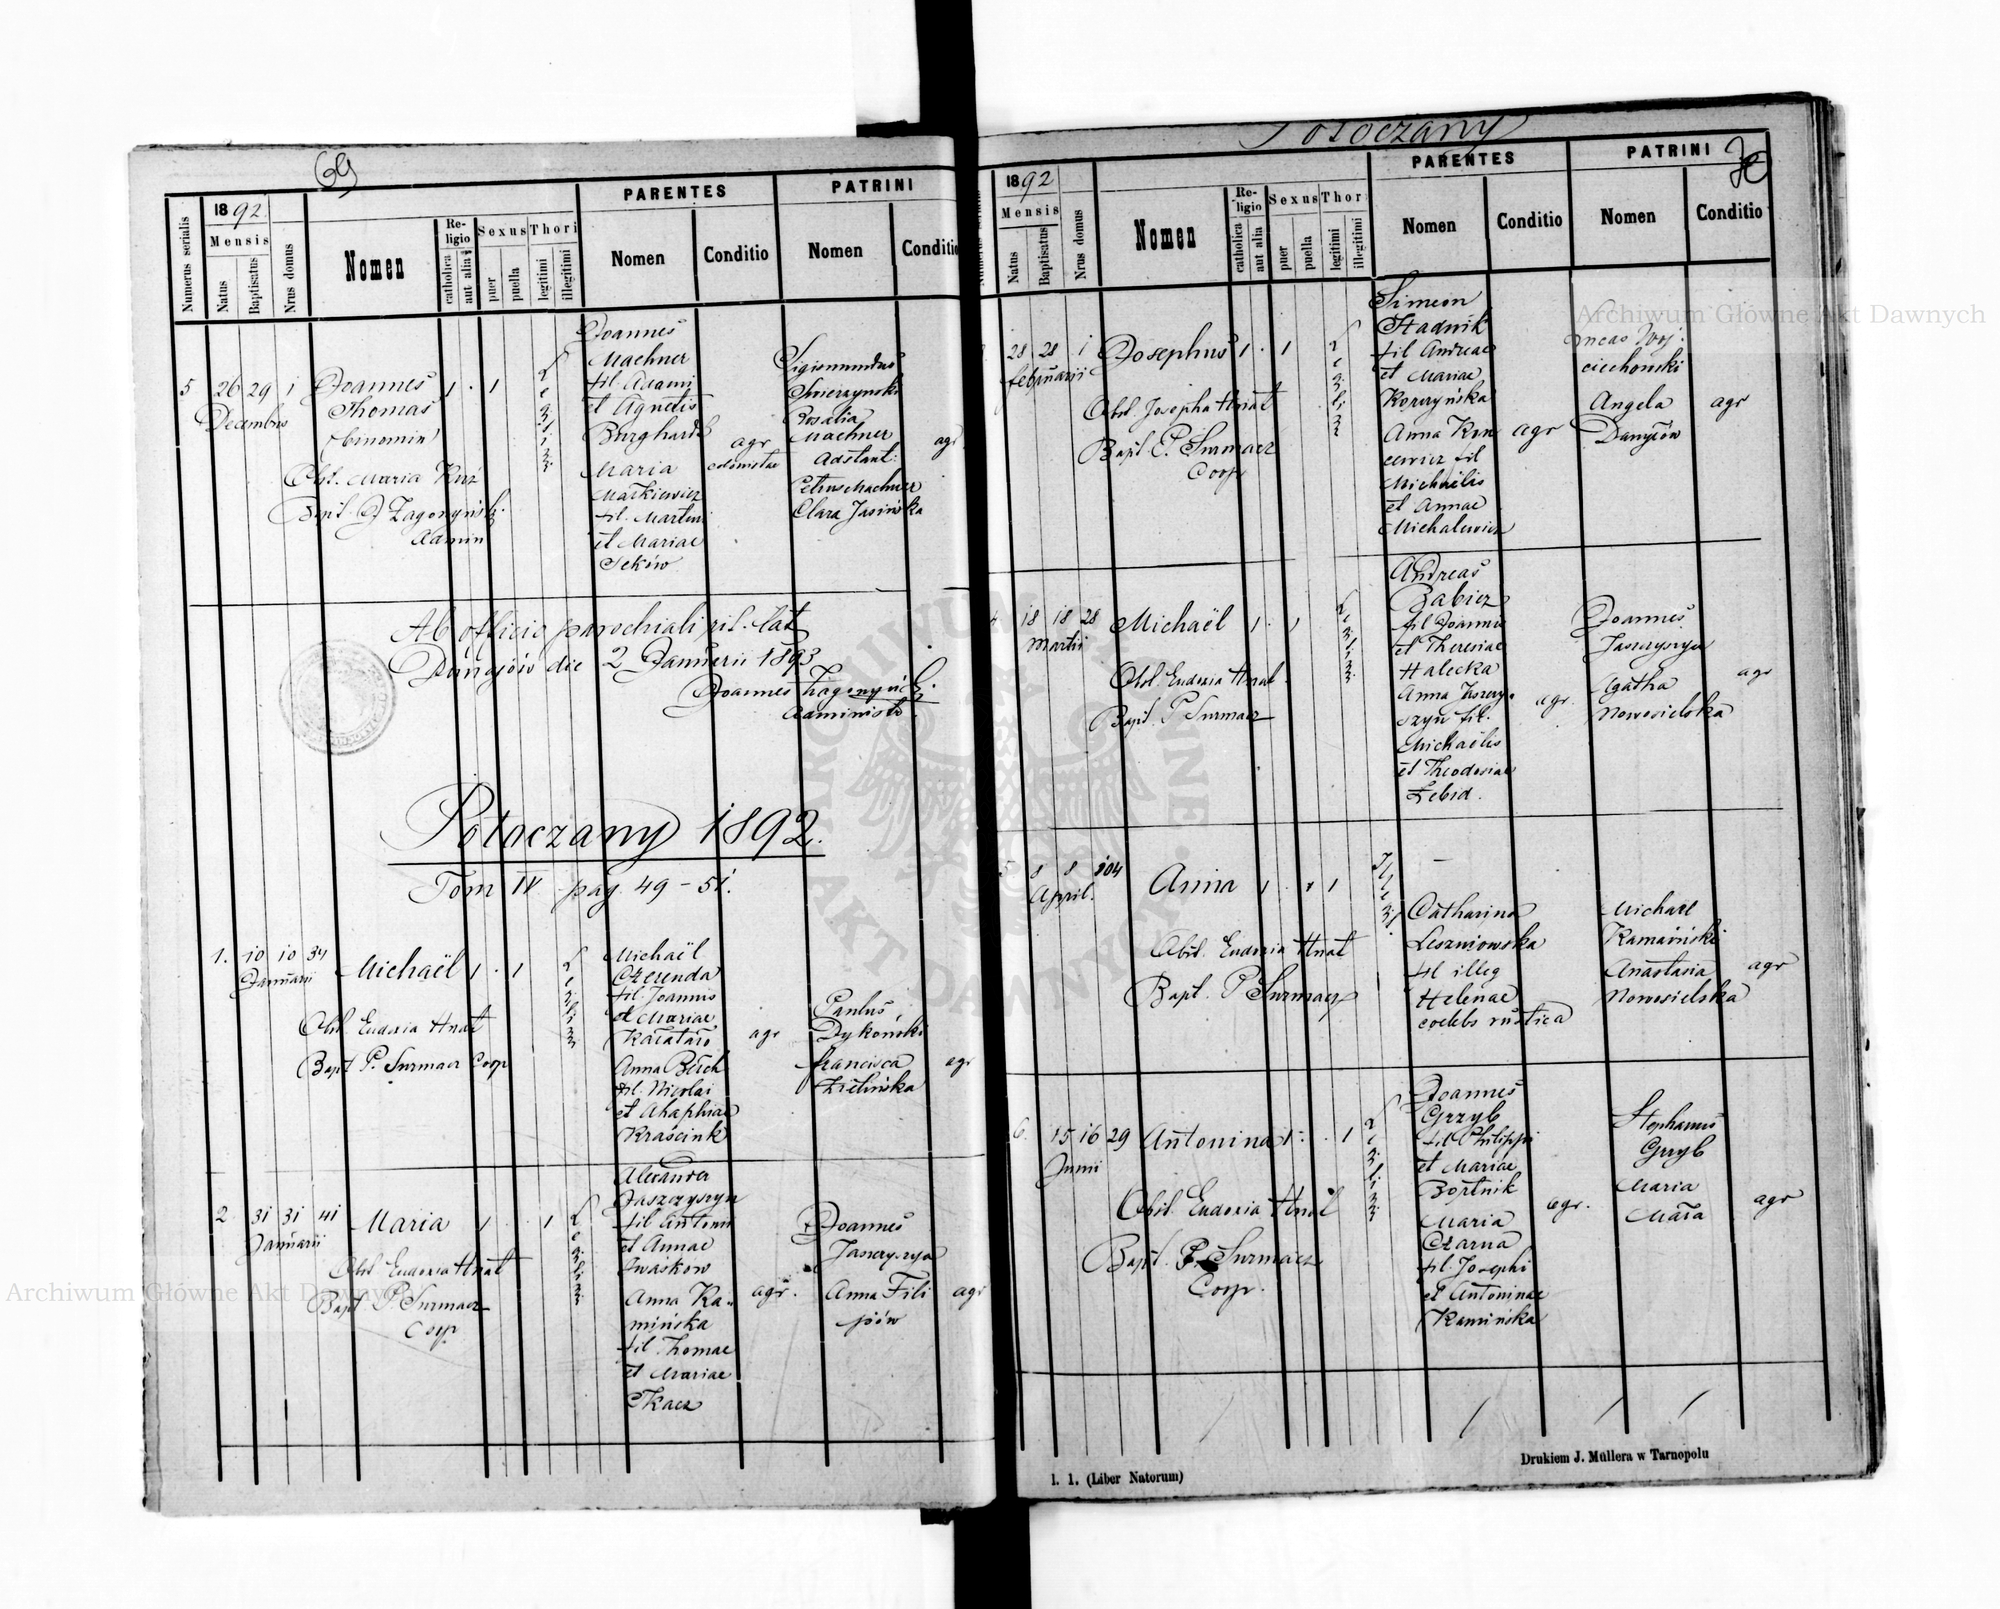 69
1892
PARENTES
PATRINI
Numerus serialis
Mensis
Natus
Baptisatus
Nrus domus
Nomen
Religio
catholica
aut alia
Sexus
puer
puella
Thori
legitimi
illegitimi
Nomen
Conditio
Nomen
Conditio
5 26 29 1
Decembris
Joannes
Thomas
(binomin)
Obst. Maria Kuź
Bapt. J Zagórzyński
Admin
1 1
Joannes
Machner
fil. Adami
et Agnetis
Burghardt
Maria
Markiewicz
fil. Martini
et Mariae
Seków
agr
colonistae
Sigismundus
Smierzynski
Rosalia
Machner
Adstant:
Petrus Machner
Clara Jasińska
agr
Ab officio parochiali rit. lat
Dunajów die 2 Januarii 1893
Joannes
Administr.
Potoczany 1892.
Tom IV pag. 49 - 51.
1. 10 10 34
Januarii
Michaël 1 1
Obst. Eudoxia Hnat
Bapt P. Surmacz Coop
Michaël
Czerenda
fil. Joannis
et Mariae
Anna
fil. Nicolai
et Ahaphiae
agr
Paulus
Dykoński
Francisca
Zielińska
agr
2 31 31 41
Januarii
Maria 1 1
Obst Eudoxia Hnat
Bapt P Surmacz
Coop
Alexander
Jaszczyszyn
fil Antonii
et Annae
Iwaskow
Anna Ka-
mińska
fil Thomae
et Mariae
Tkacz
agr.
Joannes
Jaszczyszyn
Anna Fili
pów
agr
Potoczany
70
1892
PARENTES
PATRINI
Mensis
Natus
Baptisatus
Nrus domus
Nomen
Religio
catholica
aut alia
Sexus
puer
puella
Thori
legitimi
illegitimi
Nomen
Conditio
Nomen
Conditio
28 28 1
februarii
Josephus 1 1
Obst. Josepha Hnat
Bapt. P. Surmacz
Coop
Simeon
Stadnik
fil Andreae
et Mariae
Kopczyńska
Anna
fil
Michaelis
et Annae
Michalewicz
agr
Woj-
ciechowski
Angela
Danyłów
agr
4 18 18 28
Martii
Michaël 1 1
Obst. Eudoxia Hnat
Bapt. P Surmacz
Andreas
Babicz
fil Joannis
et Theresiae
Halecka
Anna Jaszczy-
szyn fil.
Michaëlis
et Theodosiae
Łebid.
agr.
Joannes
Jaszczyszyn
Agatha
Nowosielska
agr
5 8 8 104
April.
Anna 1 1
Obst. Eudoxia Hnat
Bapt. P Surmacz
Catharina
Leszniowska
fil illeg
Helenae
coelebs rustica
Michael
Kamiński
Anastasia
Nowosielska
agr
6. 15 16 29
Junii
Antonina 1 1
Obst. Eudoxia Hnat
Bapt. P. Surmacz
Coop.
Joannes
Grzyb
fil Philippi
et Mariae
Bortnik
Maria
Czarna
fil. Josephi
et Antoninae
Kamińska
agr.
Stephanus
Grzyb
Maria
agr
l. 1. (Liber Natorum)
Drukiem J. Müllera w Tarnopolu
Archiwum Główne Akt Dawnych
Archiwum Główne Akt Dawnych
ARCHIWUM GŁÓWNE AKT DAWNYCH